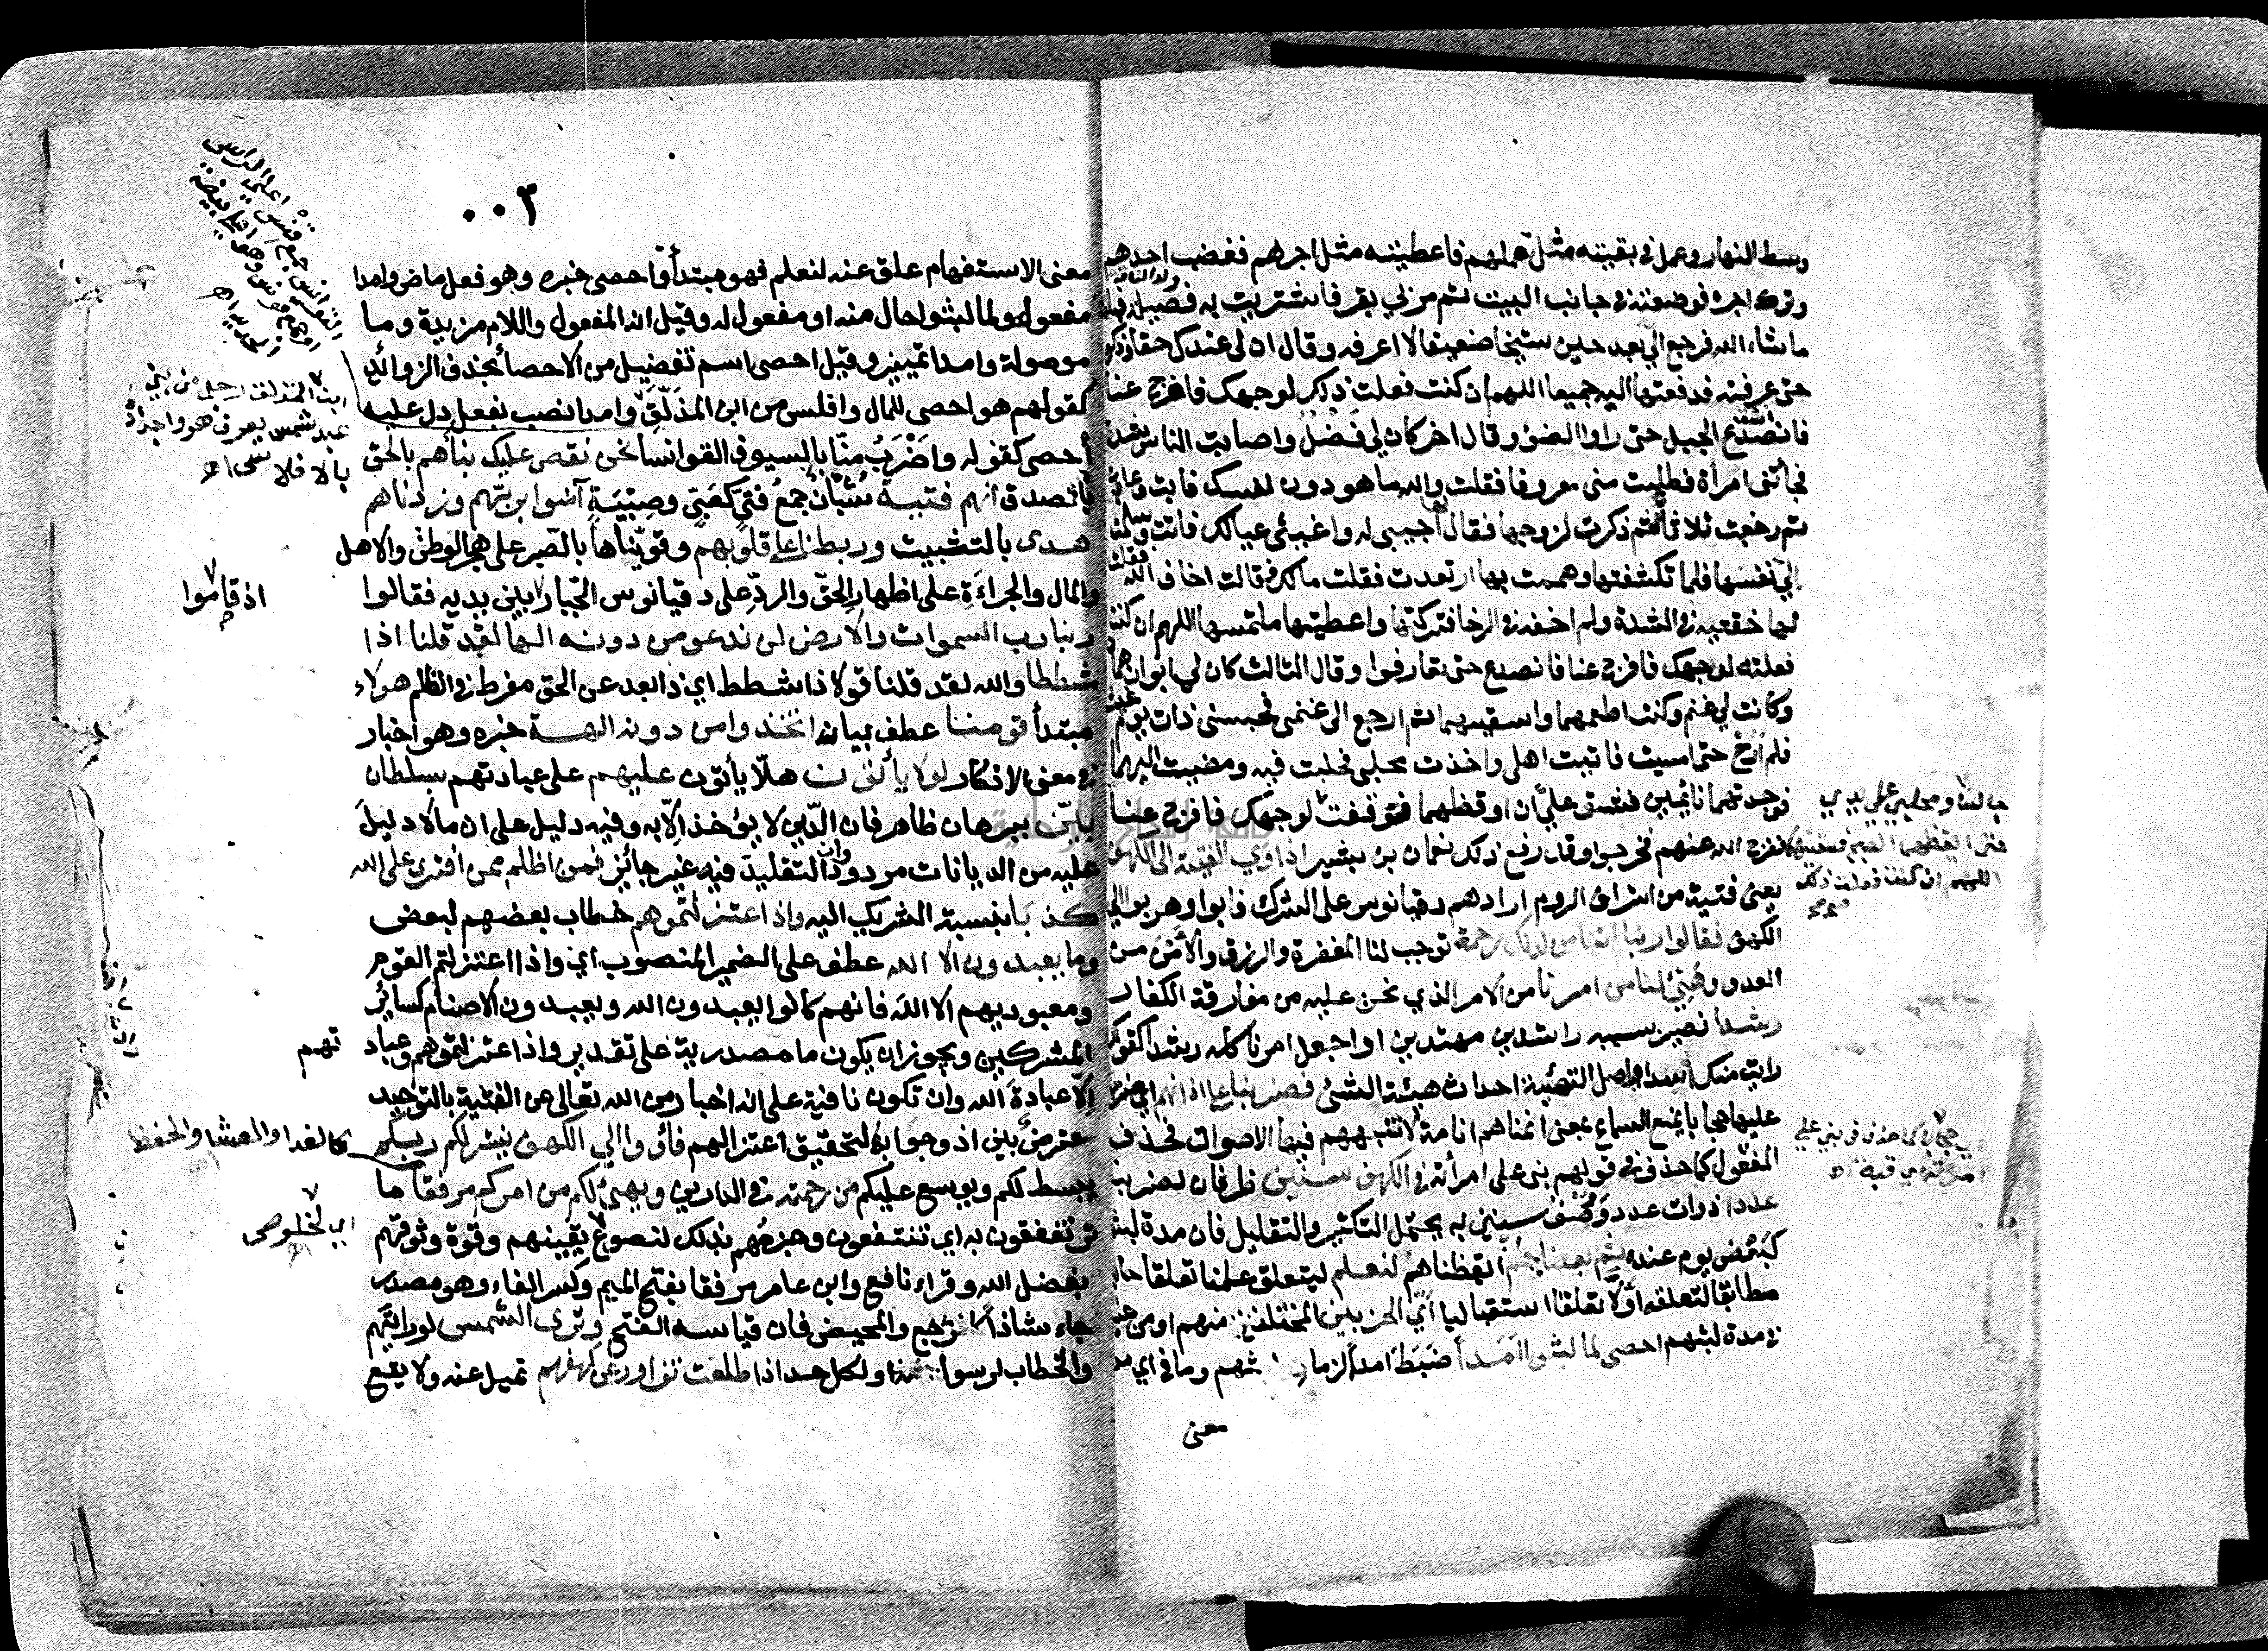 وسط النهار وعمل في بقيته مثل عملهم فاعطيته مثل اجرهم فغضب احدهم
وترك اجره فوضعته في جانب البيت ثم مر بي بقر فاشتريت به فصيلة فبلغت
ما شاء الله فرجع الي بعد حين شيخا ضعيفا لا اعرفه وقال ان لي عندك حقا وذكره
حتى عرفته فدفعتها اليه جميعا اللهم ان كنت فعلت ذلك لوجهك فافرج عنا
فانصدع الجبل حتى راوا الضوء وقال اخر كان لي فضل واصابت الناس شدة
فجاتني امرأة فطلبت مني معروفا فقلت والله ما هو دون نفسك فابت وعادت
ثم رجعت ثلاثا ثم ذكرت لزوجها فقال اجيبي له واغيثي عيالك فاتت وسلمت
الي نفسها فلما تكشفتها وهممت بها ارتعدت فقلت مالك قالت اخاف الله فقلت
لها خفتيه في الشدة ولم اخفه في الرخا فتركتها واعطيتها ملتمسها اللهم ان كنت
فعلته لوجهك فافرج عنا فانصدع حتى تعارفوا وقال الثالث كان لي ابوان همان
وكانت لي غنم وكنت اطعمهما واسقيهما ثم ارجع الى غنمي فحبسني ذات يوم غيث
فلم ارح حتى امسيت فاتيت اهلي واخذت محلبي فحلبت فيه ومضيت اليهما
فوجدتهما نائمين فشق علي ان اوقظهما فتوقفت لوجهك فافرج عنا
ففرج الله عنهم فخرجوا وقد رفع ذلك نعمان بن بشير اذ اوى الفتية الى الكهف
يعنى فتية من اشراف الروم ارادهم دقيانوس على الشرك فابوا وهربوا الى
الكهف فقالوا ربنا اتنا من لدنك رحمة توجب لنا المغفرة والرزق والأمن من
العدو وهيئ لنا من امرنا من الامر الذي نحن عليه من مفارقة الكفار
رشدا نصير بسببه راشدين مهتدين او اجعل امرنا كله رشدا كقولك
رايت منك اسدا واصل التهيئة احداث هيئة الشئ فضربنا على اذانهم اي ضربنا
عليها حجابا يمنع السماع بمعنى انمناهم انامة لا تنبههم فيها الاصوات فحذف
المفعول كما حذف في قولهم بنى على امرأته في الكهف سنين ظرفان لضربنا
عددا ذوات عدد ووصف سنين به يحتمل التكثير والتقليل فان مدة لبثهم
كبعض يوم عنده ثم بعثناهم ايقظناهم لنعلم ليتعلق علمنا تعلقا حاليا
مطابقا لتعلقه اولا تعلقا استقباليا اي الحزبين المختلفين منهم او من غيرهم
في مدة لبثهم احصى لما لبثوا امدا ضبط امدا لزمان لبثهم وما في اي من
معنى
جالسا ومحلبي على يدي
حتى ايقظهما الصبح فسقيتهما
اللهم ان كنت فعلت ذلك
اي حجابا كما حذف في بنى على
امرأته اي قبة اه
٠٠٣
معنى الاستفهام علق عنه لنعلم فهو مبتدأ واحصى خبره وهو فعل ماض وامدا
مفعوله ولما لبثوا حال منه او مفعول له وقيل انه المفعول واللام مزيدة وما
موصولة وامدا تمييز وقيل احصى اسم تفضيل من الاحصأ بحذف الزوائد
كقولهم هو احصى للمال وافلس من ابن المذلق وامدا نصب بفعل دل عليه
أحصى كقوله وأضرب منا بالسيوف القوانسا نحن نقص عليك نبأهم بالحق
بالصدق انهم فتية شبان جمع فتى كصبى وصبية آمنوا بربهم وزدناهم
هدى بالتثبيت وربطنا على قلوبهم وقويناها بالصبر على هجر الوطن والاهل
والمال والجراءة على اظهار الحق والرد على دقيانوس الجبار بين يديه فقالوا
ربنا رب السموات والارض لن ندعو من دونه الها لقد قلنا اذا
شططا والله لقد قلنا قولا ذا شطط اي ذا بعد عن الحق مفرط في الظلم هولاء
مبتدأ قومنا عطف بيان اتخذوا من دونه الهة خبره وهو اخبار
في معنى الانكار لولا يأتون هلا يأتون عليهم على عبادتهم بسلطان
بين ببرهان ظاهر فان الدين لا يؤخذ الا به وفيه دليل على ان مالا دليل
عليه من الديانات مردود وان التقليد فيه غير جائز فمن اظلم ممن افترى على الله
كذبا بنسبة الشريك اليه واذ اعتزلتموهم خطاب بعضهم لبعض
وما يعبدون الا الله عطف على الضمير المنصوب اي واذا اعتزلتم القوم
ومعبوديهم الا الله فانهم كانوا يعبدون الله ويعبدون الاصنام كسائر
المشركين ويجوز ان يكون ما مصدرية على تقدير واذا اعتزلتموهم وعبادتهم
إلا عبادة الله وان تكون نافية على انه اخبار من الله تعالى عن الفتية بالتوحيد
معترض بين اذ وجوابه لتحقيق اعتزالهم فأووا الى الكهف ينشر لكم ربكم
يبسط لكم ويوسع عليكم من رحمته في الدارين ويهيئ لكم من امركم مرفقا ما
ترتفقون به اي تنتفعون وجزمهم بذلك لنصوع يقينهم وقوة وثوقهم
بفضل الله وقراء نافع وابن عامر مرفقا بفتح الميم وكسر الفاء وهو مصدر
جاء شاذا كالمرجع والمحيض فان قياسه الفتح وترى الشمس لو رأيتهم
والخطاب لرسول او لكل احد اذا طلعت تزاور عن كهفهم تميل عنه ولا يقع
ابن المذلق رجل من بني
عبد شمس يعرف هو واجداده
بالافلاس اه
اذ قاموا
كالغدا والعشا والحفظ
اي لخلوص